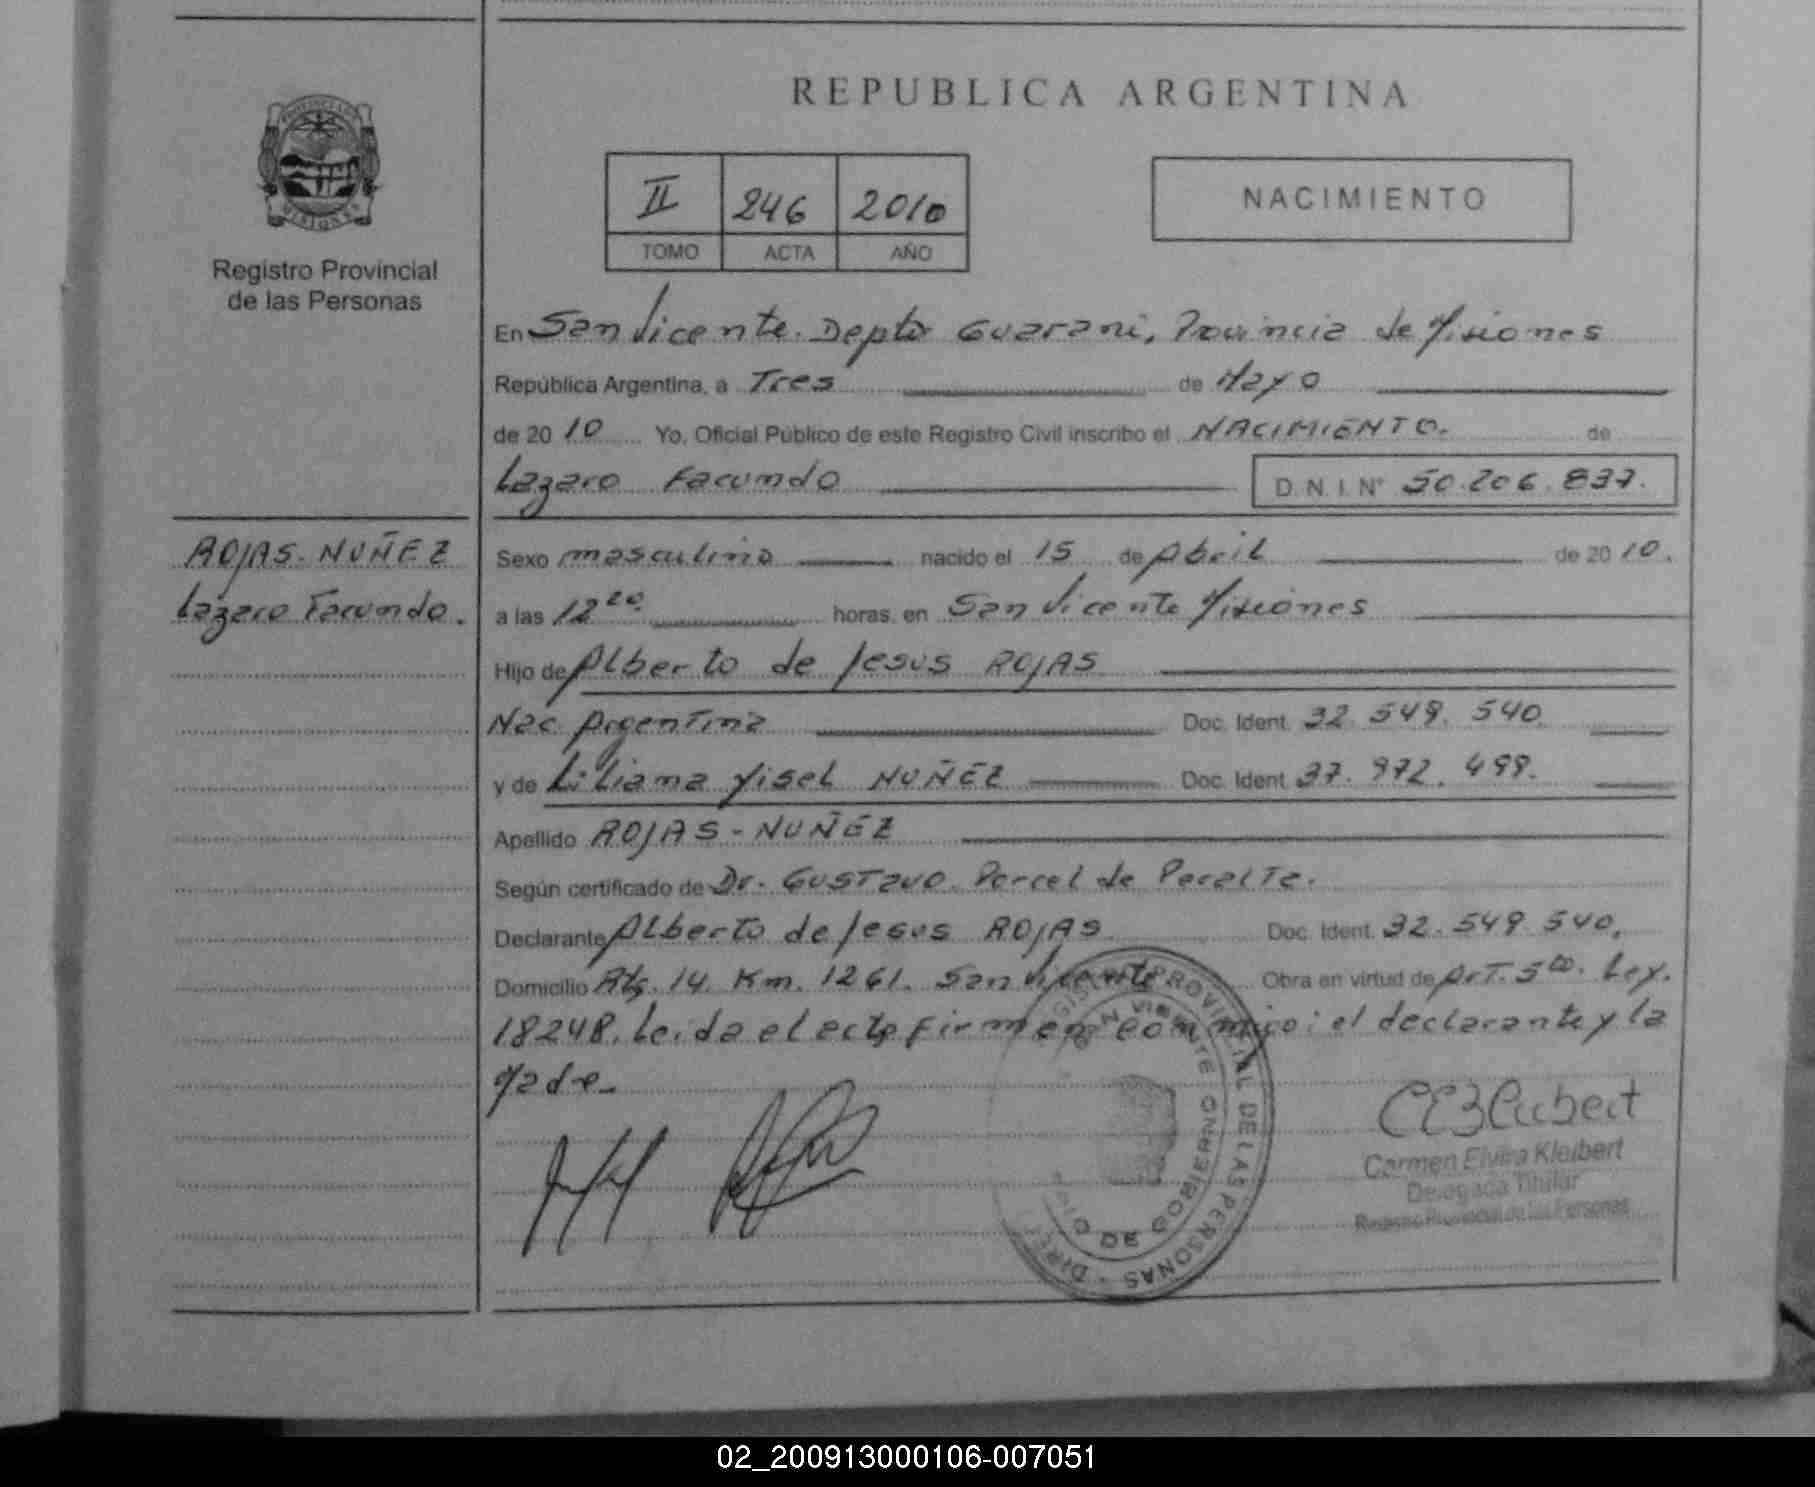 REPUBLICA ARGENTINA
II 246 2010
TOMO ACTA AÑO
NACIMIENTO
Registro Provincial
de las Personas
En San Vicente. Depto Guarani, Provincia de Misiones
República Argentina, a Tres de Mayo
de 2010 Yo, Oficial Público de este Registro Civil inscribo el NACIMIENTO. de
Lazaro Facundo D. N. I. N° 50.206.837.
ROJAS-NUÑEZ
Lazaro Facundo.
Sexo masculino nacido el 15 de Abril de 2010.
a las 12 20 horas, en San Vicente Misiones
Hijo de Alberto de Jesus ROJAS
Nac. Argentina Doc. Ident. 32.549.540
y de Liliana Yisel NUÑEZ Doc. Ident. 37.972.499.
Apellido ROJAS-NUÑEZ
Según certificado de Dr. Gustavo Porcel de Peralta.
Declarante Alberto de Jesus ROJAS Doc. Ident. 32.549.540.
Domicilio Rta. 14 Km. 1261. San Vicente Obra en virtud de Art. 5to. Ley.
18248. Leida el acta firman conmigo: el declarante y la
Madre
Carmen Elvira Kleibert
Delegada Titular
Registro Provincial de las Personas
PROVINCIAL DE LAS PERSONAS - DIREC
VICENTE
GOBIERNO
02_200913000106-007051